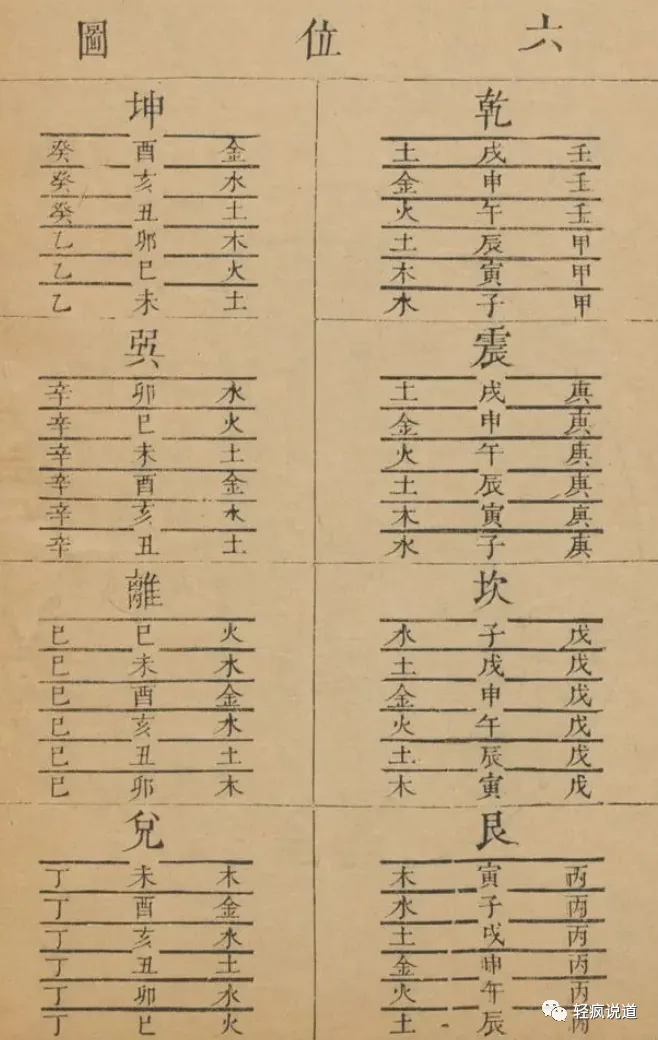 六位圖
乾
壬 戌 土
壬 申 金
壬 午 火
甲 辰 土
甲 寅 木
甲 子 水
坤
金 酉 癸
水 亥 癸
土 丑 癸
木 卯 乙
火 巳 乙
土 未 乙
震
庚 戌 土
庚 申 金
庚 午 火
庚 辰 土
庚 寅 木
庚 子 水
巽
水 卯 辛
火 巳 辛
土 未 辛
金 酉 辛
水 亥 辛
土 丑 辛
坎
戊 子 水
戊 戌 土
戊 申 金
戊 午 火
戊 辰 土
戊 寅 木
離
火 巳 巳
水 未 巳
金 酉 巳
水 亥 巳
土 丑 巳
木 卯 巳
艮
丙 寅 木
丙 子 水
丙 戌 土
丙 申 金
丙 午 火
丙 辰 土
兌
木 未 丁
金 酉 丁
水 亥 丁
土 丑 丁
水 卯 丁
火 巳 丁
轻疯说道